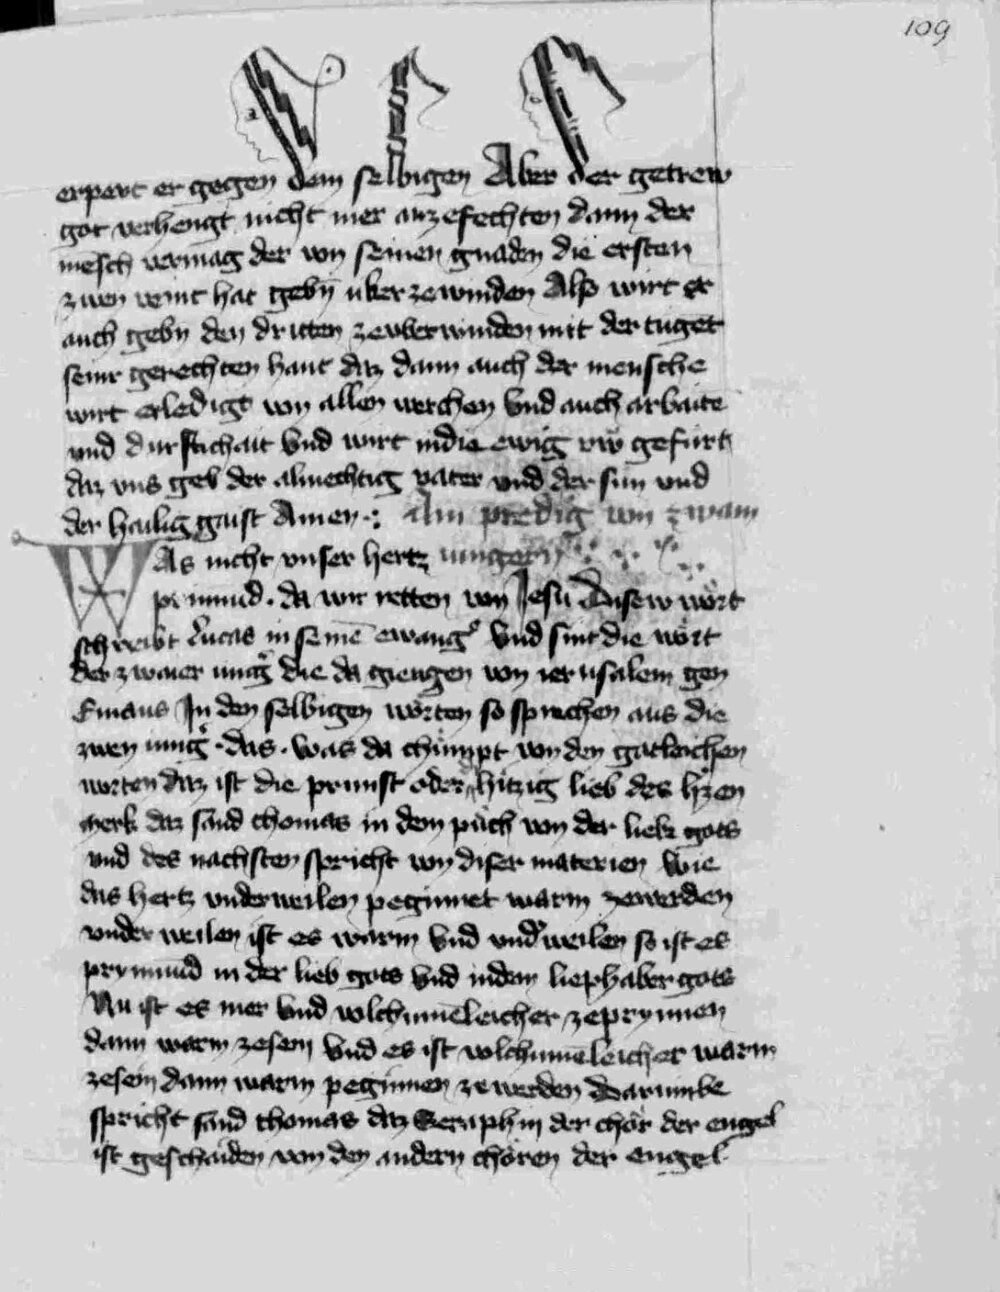 109
erpert er gegen dem selbigen Aber der getrew
got verhengt nicht mer anzefechten dann der
mēsch vermag der von seinen gnaden die ersten
zwen veint hat gebn̄ uberzewinden Also wirt er
auch gebn̄ den dritten zewberwinden mit der tuget
seinr gerechten hant daz dann auch der mensche
wirt erledigt von allen werchen vnd auch arbaitē
vnd durftichait vnd wirt in die ewig rw gefürt
daz vns geb der almechtig vater vnd der sun vnd
der heilig gaist Amen Ain predig von zwain
WAs nicht vnser hertz iungern
prinnūd . da wir retten von Jesu Dusew wort
schreibt lucas in seinē ewangˀ vnd sint die wort
der zwaier iungˀ die da giengen von ierusalem gen
Emaus In den selbigen worten so sprechen aus die
zwen iungˀ . das . was da chümpt von den gotleichen
worten daz ist die prunst oder hitzig lieb des hˀzen
merk daz sand thomas in dem püch von der lieb gots
vnd des nachsten spricht von diser materien wie
das hertz vnderweilen peginnet warm zewerden
vnderweilen ist es warm vnd vndˀweilen so ist es
prynnūd in der lieb gots vnd in dem liephaber gots
Nu ist es mer vnd volchumēleicher ze prynnen
dann warm zesein vnd es ist volchumēleicher warm
zesein dann warm peginnen zewerden Darumbe
spricht sand thomas daz Seraphin der chör der engel
ist geschaiden von den andern chören der engel